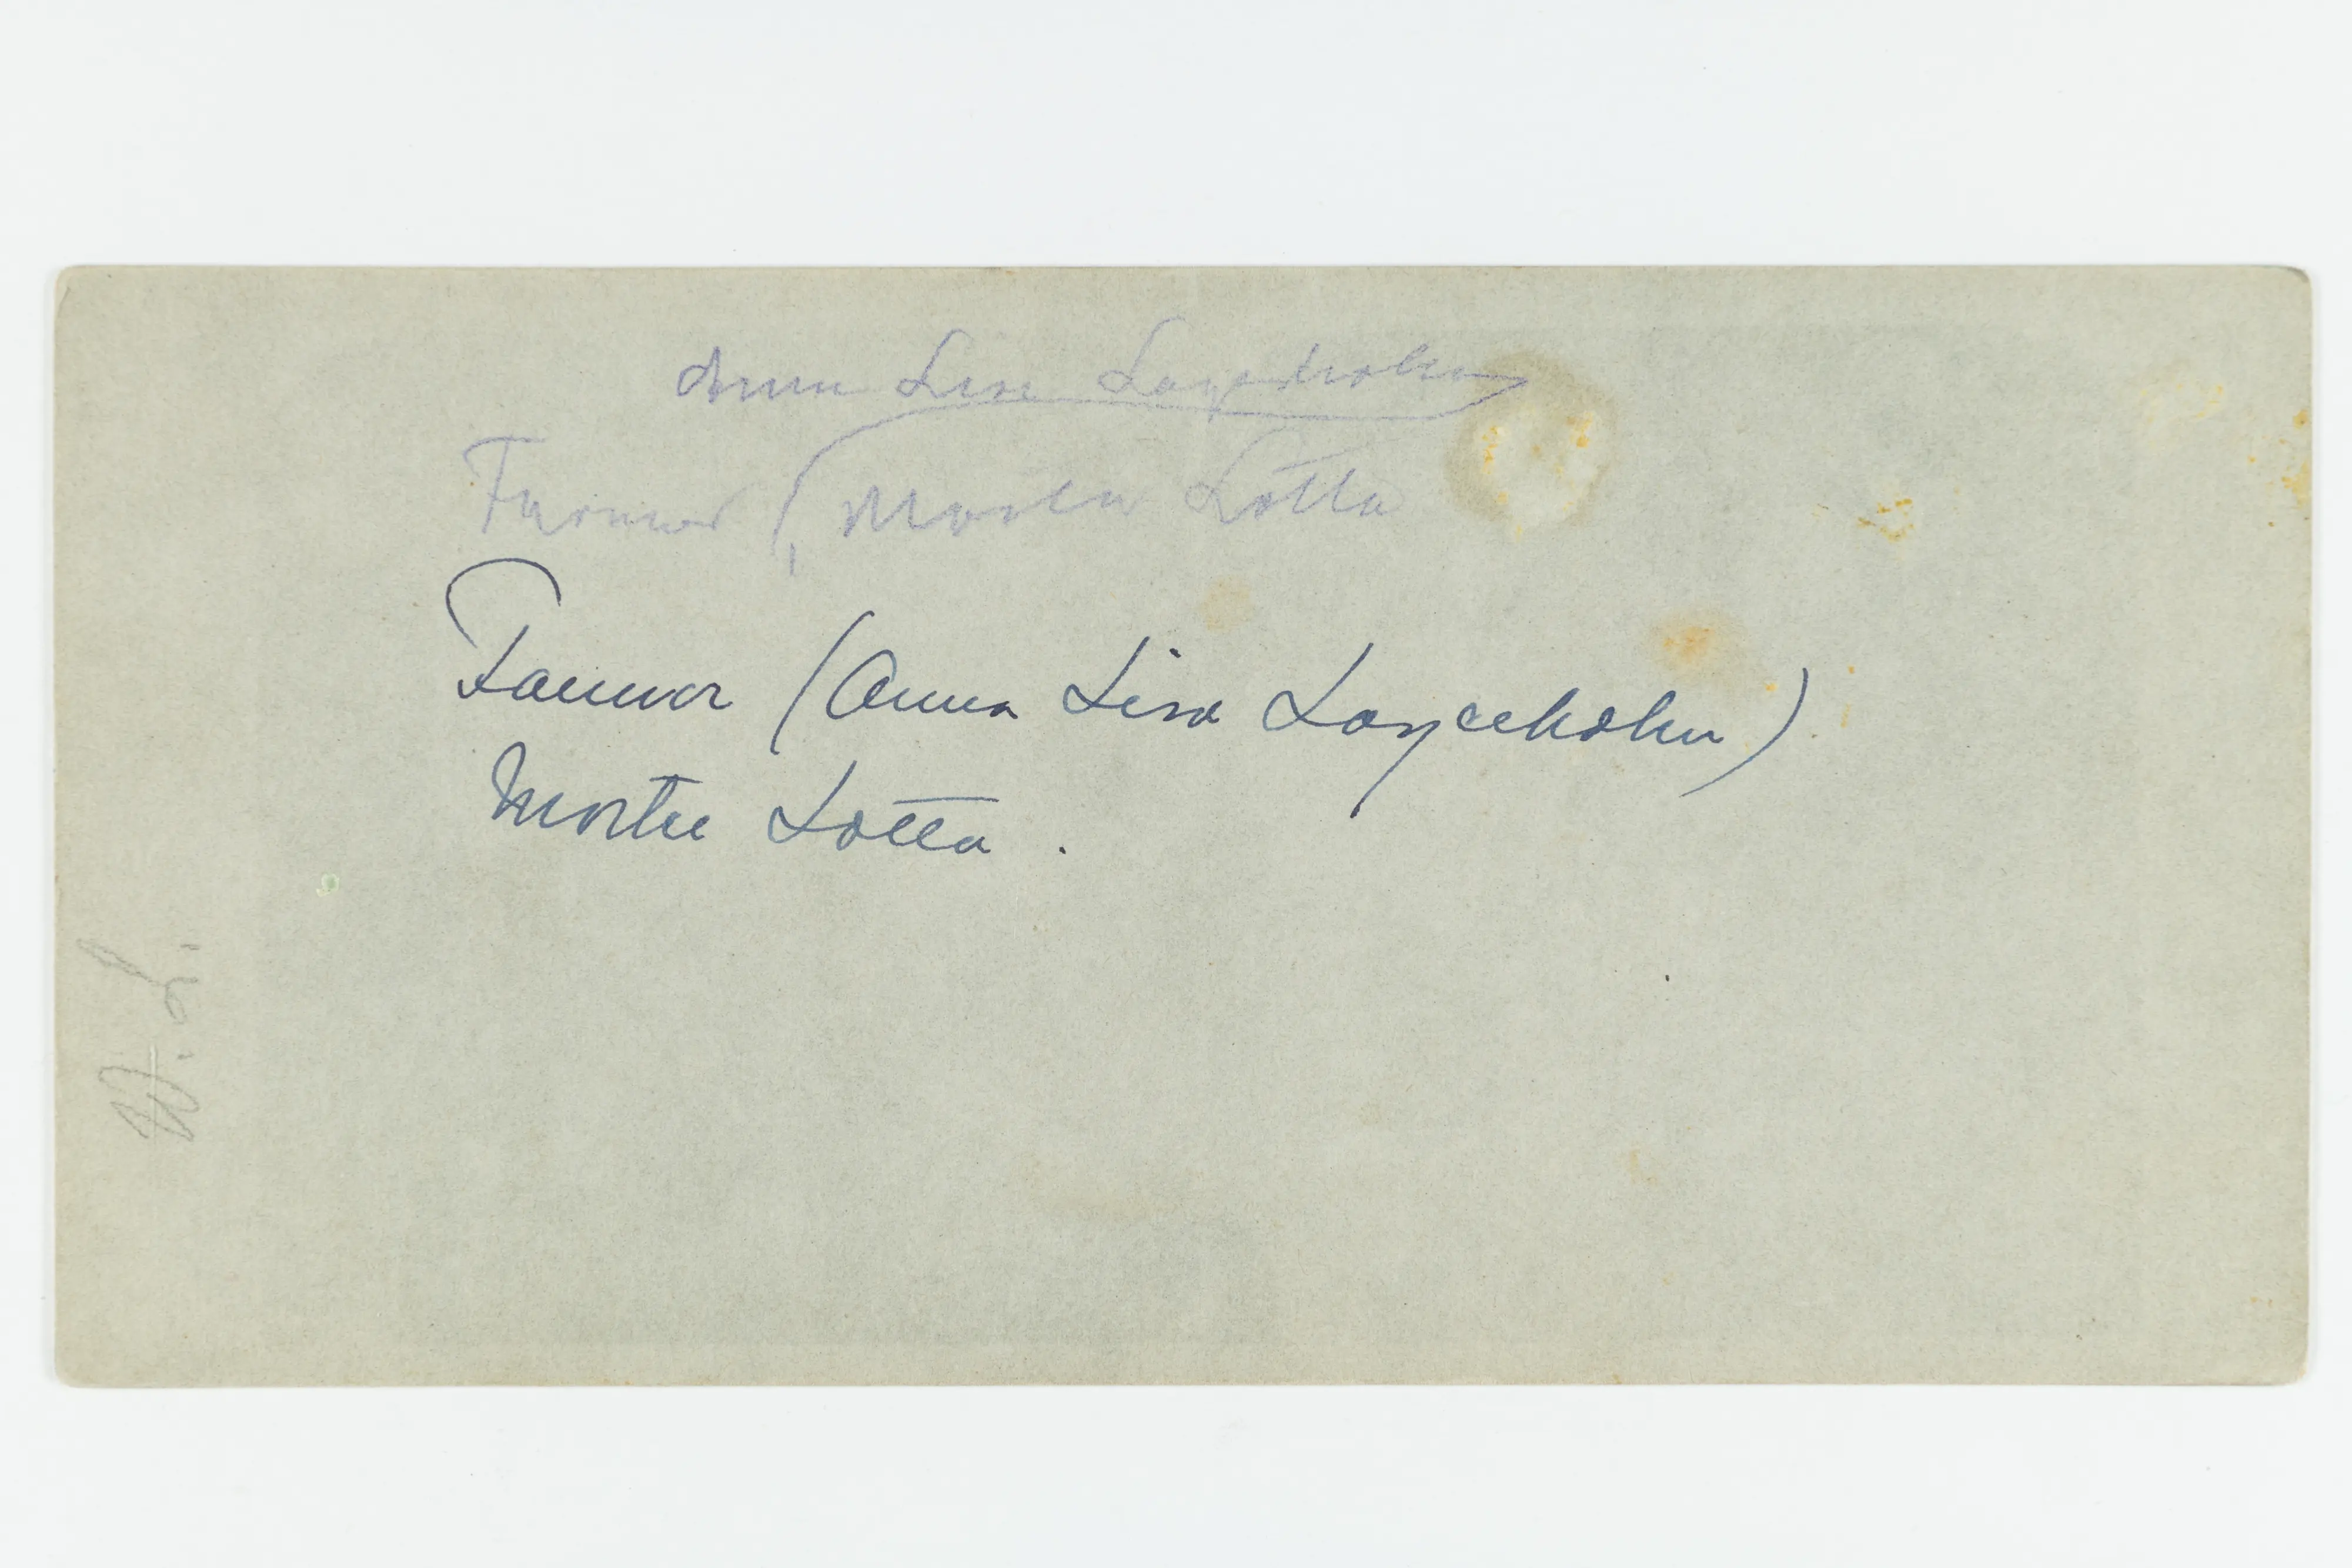 Anna Lisa Lagerholm
Farmor (Moster Lotta
Farmor (Anna Lisa Lagerholm)
Moster Lotta.